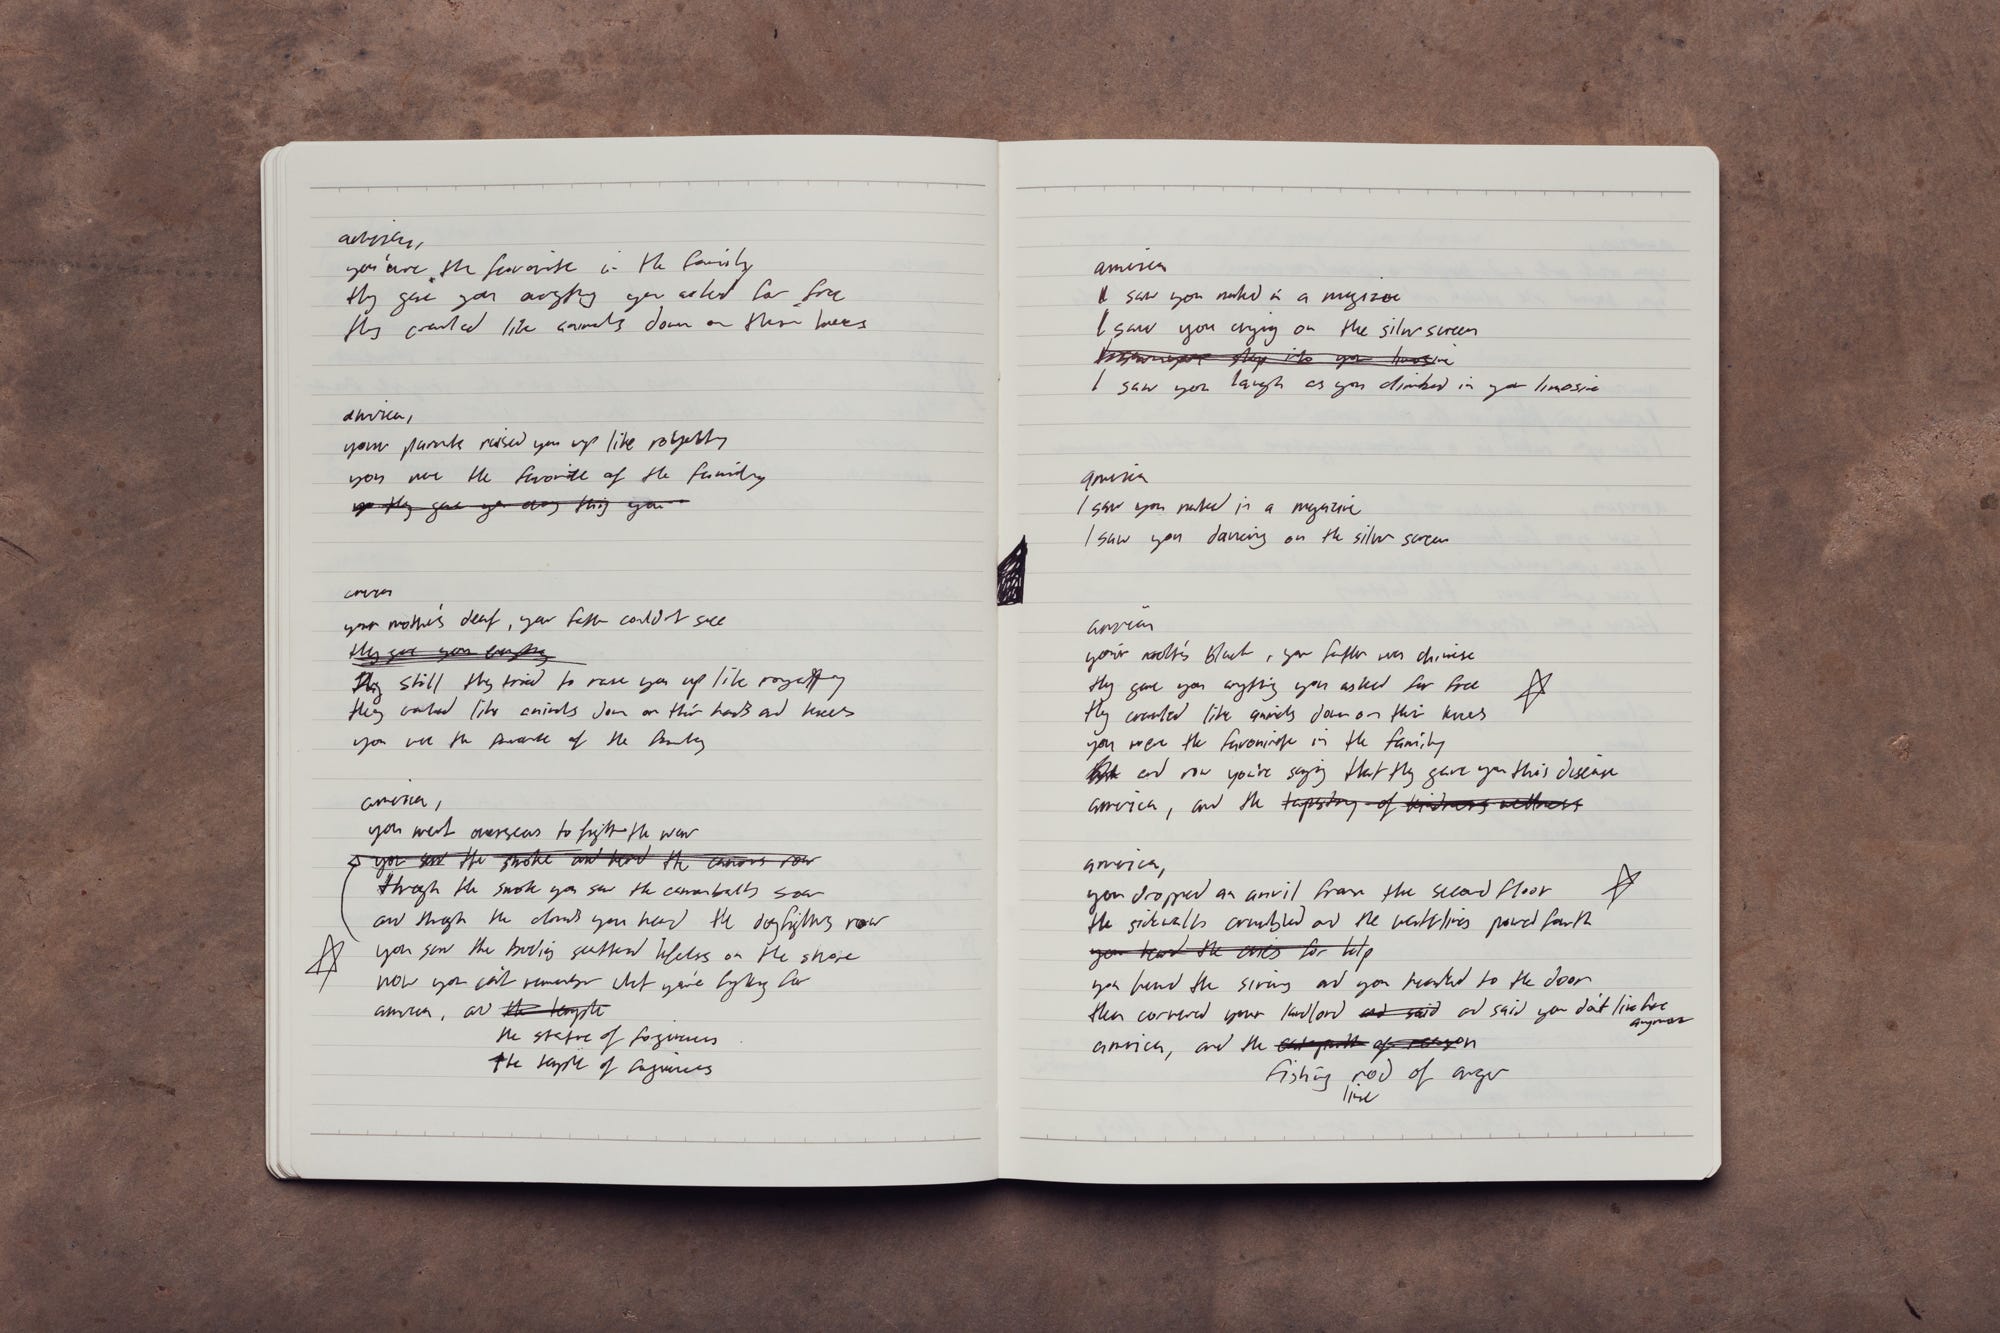 america,
you were the favorite in the family
they gave you anything you asked for free
they crawled like animals down on their knees
america,
your parents raised you up like royalty
you were the favorite of the family
they gave you any thing you
america
your mother's deaf, your father couldn't see
they gave you everything
still they tried to raise you up like royalty
they crawled like animals down on their hands and knees
you were the favorite of the family
america,
you went overseas to fight the war
you saw the smoke and heard the canons roar
through the smoke you saw the cannonballs soar
and through the clouds you heard the dogfighters roar
you saw the bodies scattered lifeless on the shore
now you can't remember what you're fighting for
america, and the temple
the statue of forgiveness
the temple of forgiveness
america
I saw you naked in a magazine
I saw you crying on the silver screen
step into your limosine
I saw you laugh as you climbed in your limosine
america
I saw you naked in a magazine
I saw you dancing on the silver screen
america
your mother's black, your father was chinese
they gave you anything you asked for free
they crawled like animals down on their knees
you were the favorite in the family
and now you're saying that they gave you this disease
america, and the tapestry of kindness
america,
you dropped an anvil from the second floor
the sidewalks crumbled and the waterlines poured fourth
you heard the cries for help
you heard the sirens and you headed to the door
then cornered your landlord and said and said you don't live here
anymore
america, and the of reason
fishing rod of anger
line